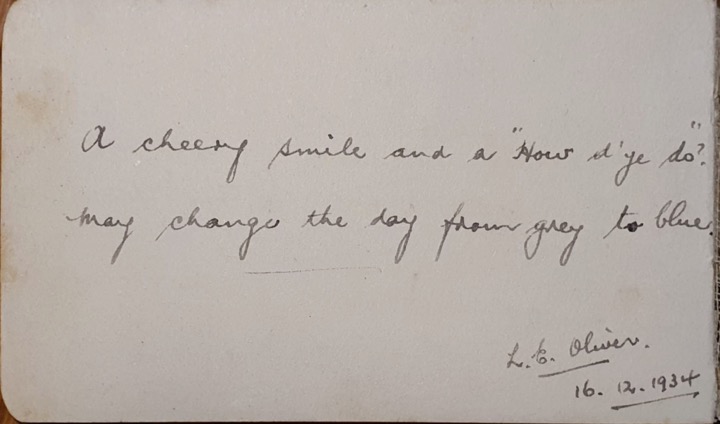 A cheery smile and a "How d'ye do"?
May change the day from grey to blue.
L. E. Oliver.
16.12.1934